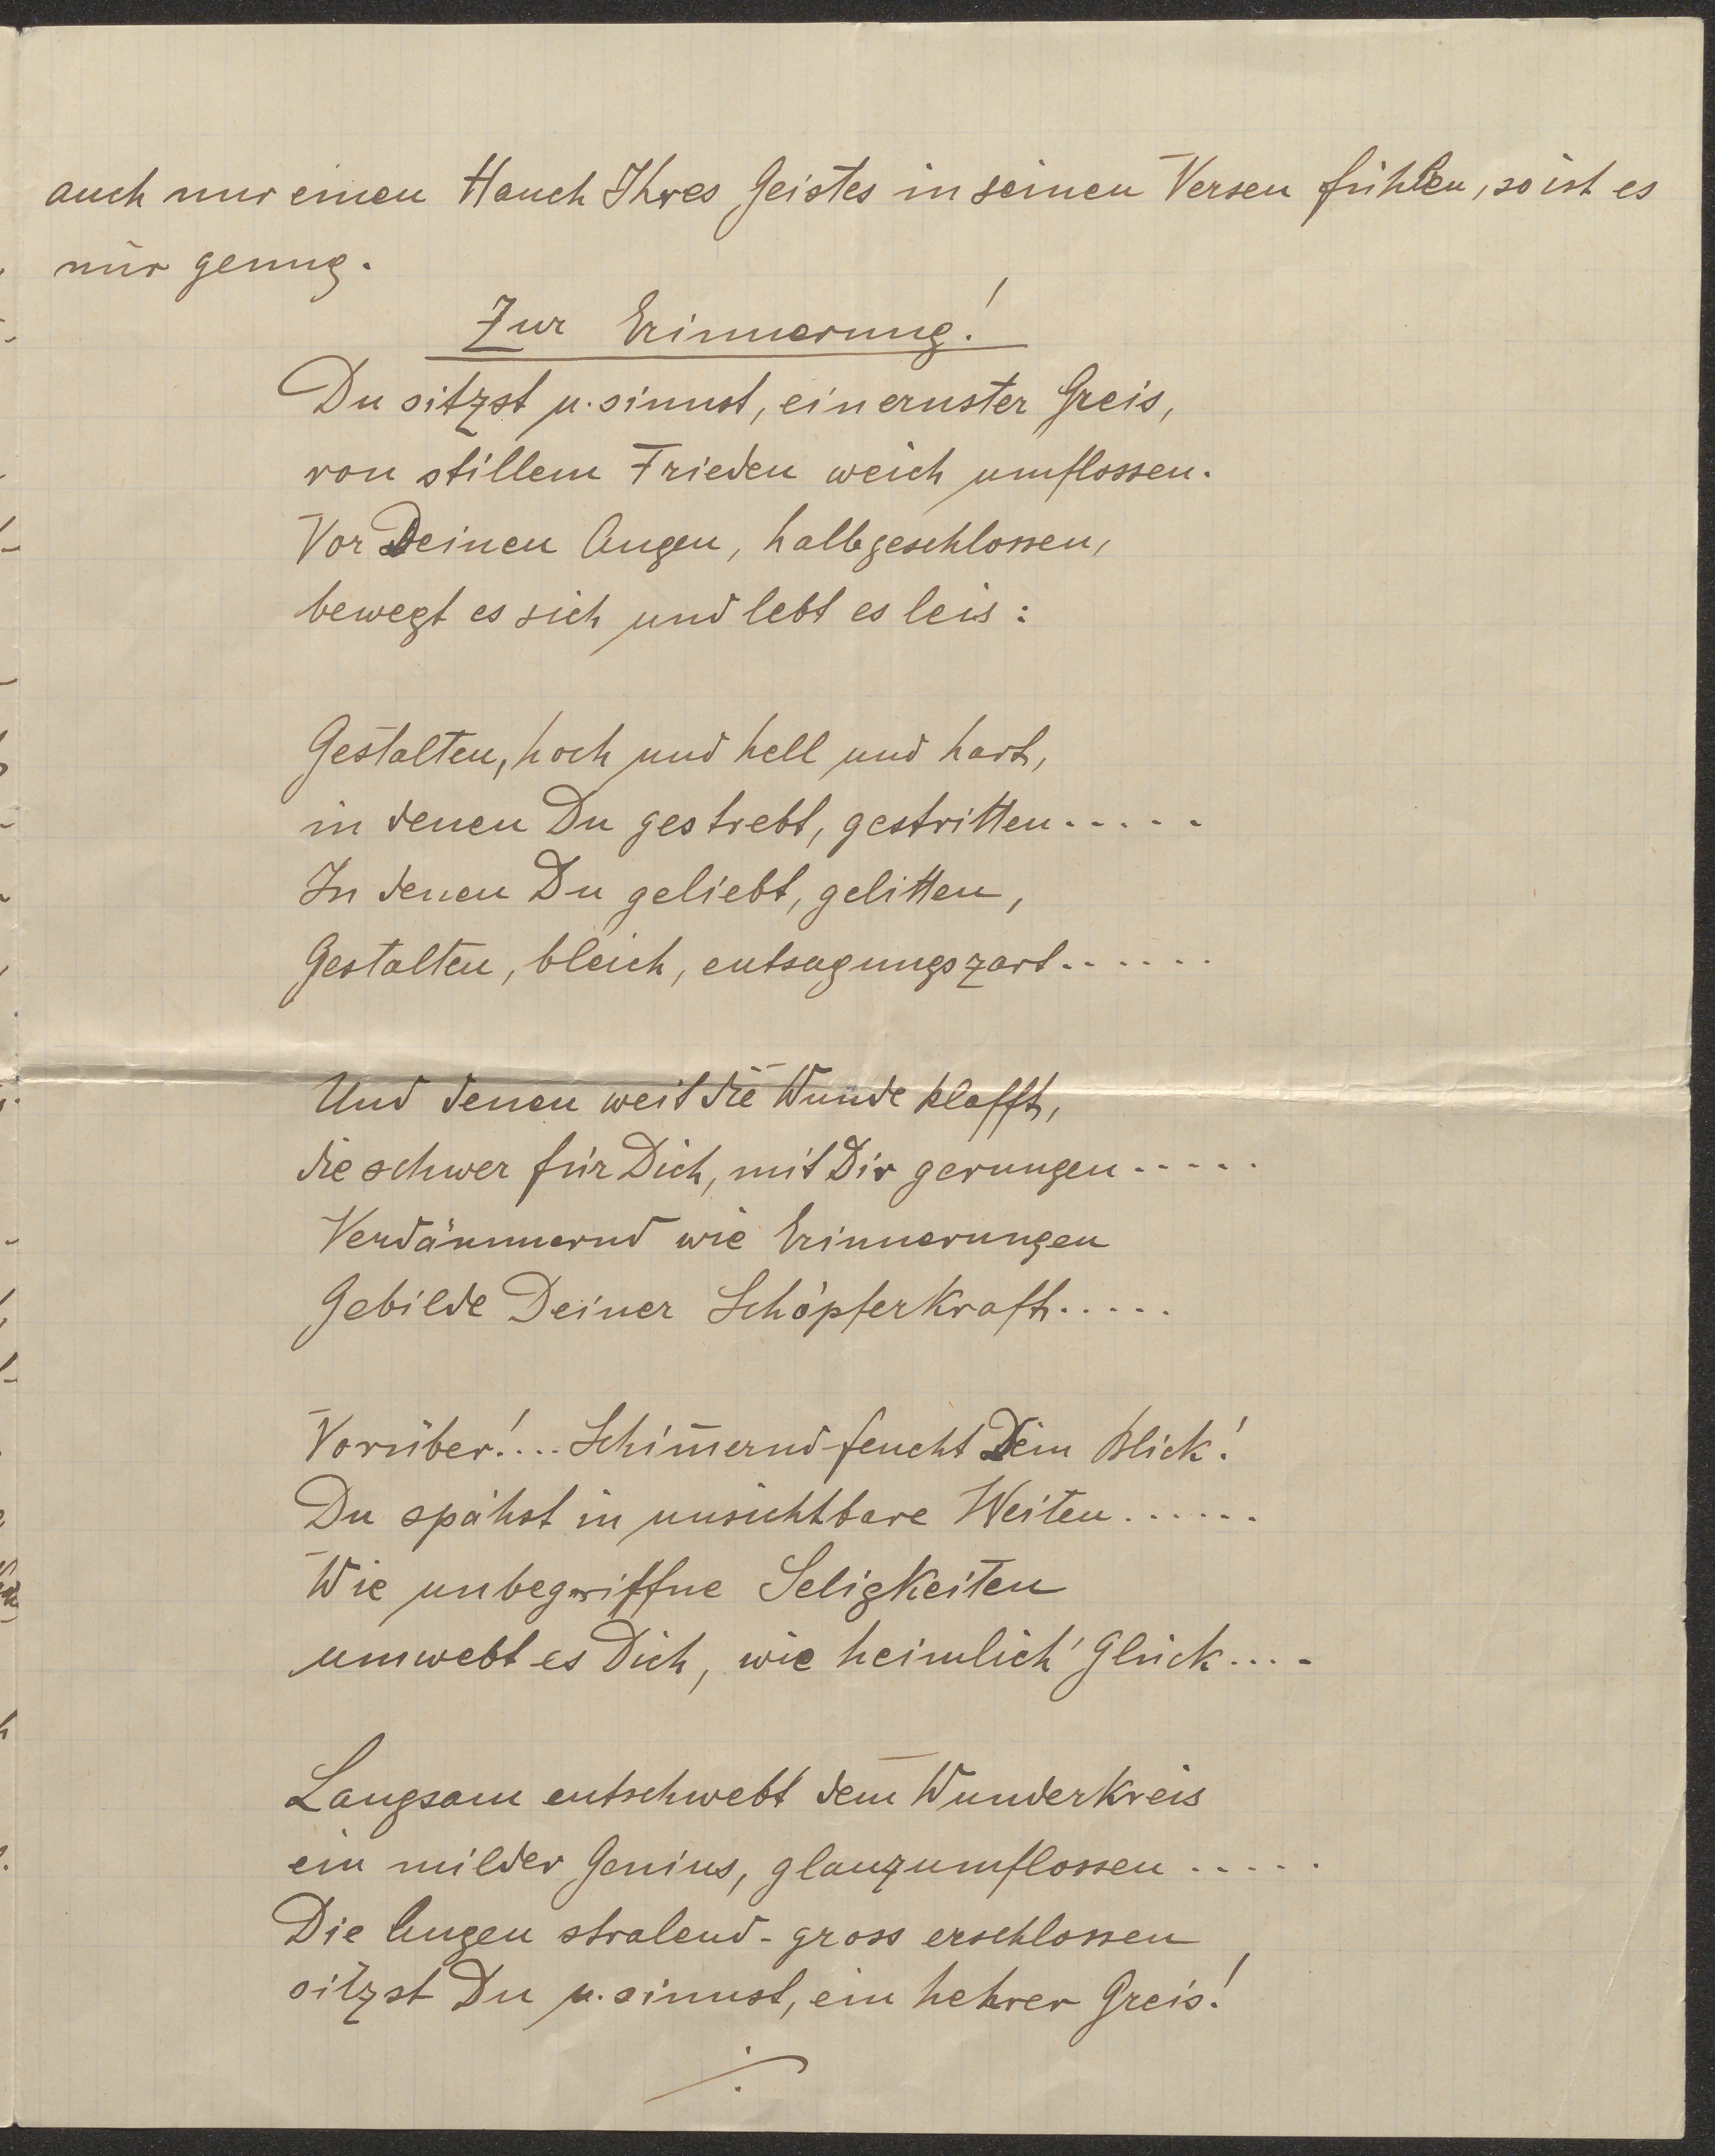 auch nur einen Hauch Ihres Geistes in seinen Versen fühlen, so ist es
mir genug.
Zur Erinnerung!
Du sitzst u. sinnst, ein ernster Greis,
von stillem Frieden weich umflossen.
Vor Deinen Augen, halbgeschlossen,
bewegt es sich und lebt es leis:
Gestalten, hoch und hell und hart,
in denen Du gestrebt, gestritten.....
In denen Du geliebt, gelitten,
Gestalten, bleich, entsagungszart......
Und denen weit die Wunde klafft,
die schwer für Dich, mit Dir gerungen.....
Verdämmernd wie Erinnerungen
Gebilde Deiner Schöpferkraft.....
Vorüber!... Schim̄ernd-feucht Dein Blick!
Du spähst in unsichtbare Weiten......
Wie unbegriffne Seligkeiten
umwebt es Dich, wie heimlich' Glück....
Langsam entschwebt dem Wunderkreis
ein milder Genius, glanzumflossen.....
Die Augen stralend-gross erschlossen
sitzst Du u. sinnst, ein hehrer Greis!